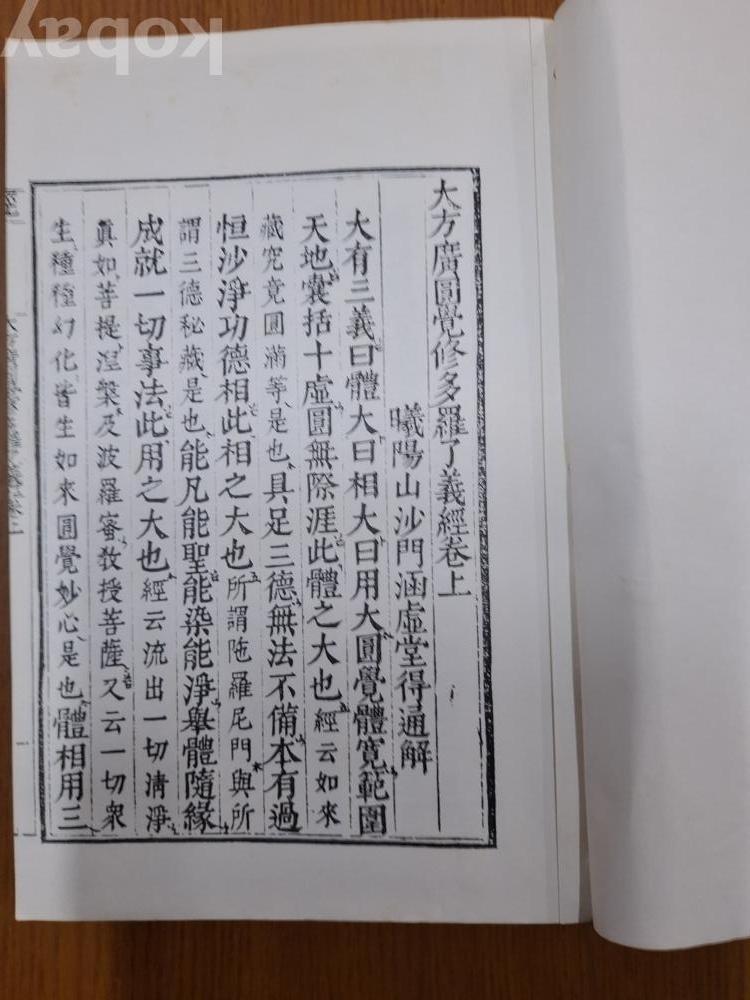 大方廣圓覺修多羅了義經卷上
曦陽山沙門涵虛堂得通解
大有三義曰體大曰相大曰用大圓覺體寬範圍
天地囊括十虛圓無際涯此體之大也經云如來
藏究竟圓滿等是也具足三德無法不備本有過
恒沙淨功德相此相之大也所謂陁羅尼門與所
謂三德秘藏是也能凡能聖能染能淨舉體隨緣
成就一切事法此用之大也經云流出一切淸淨
眞如菩提涅槃及波羅密敎授菩薩又云一切衆
生種種幻化皆生如來圓覺妙心是也體相用三
kobay